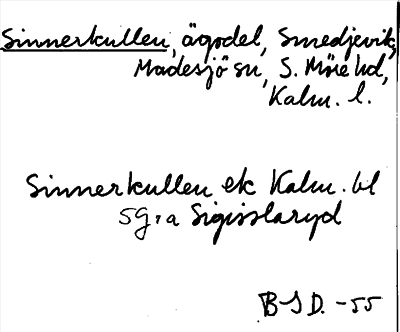 Sinnerkullen, ägodel, Smedjevik,
Madesjö sn, S. Möre hd,
Kalm. l.
Sinnerkullen ek Kalm. bl
5G:a Sigislaryd
BSD. -55